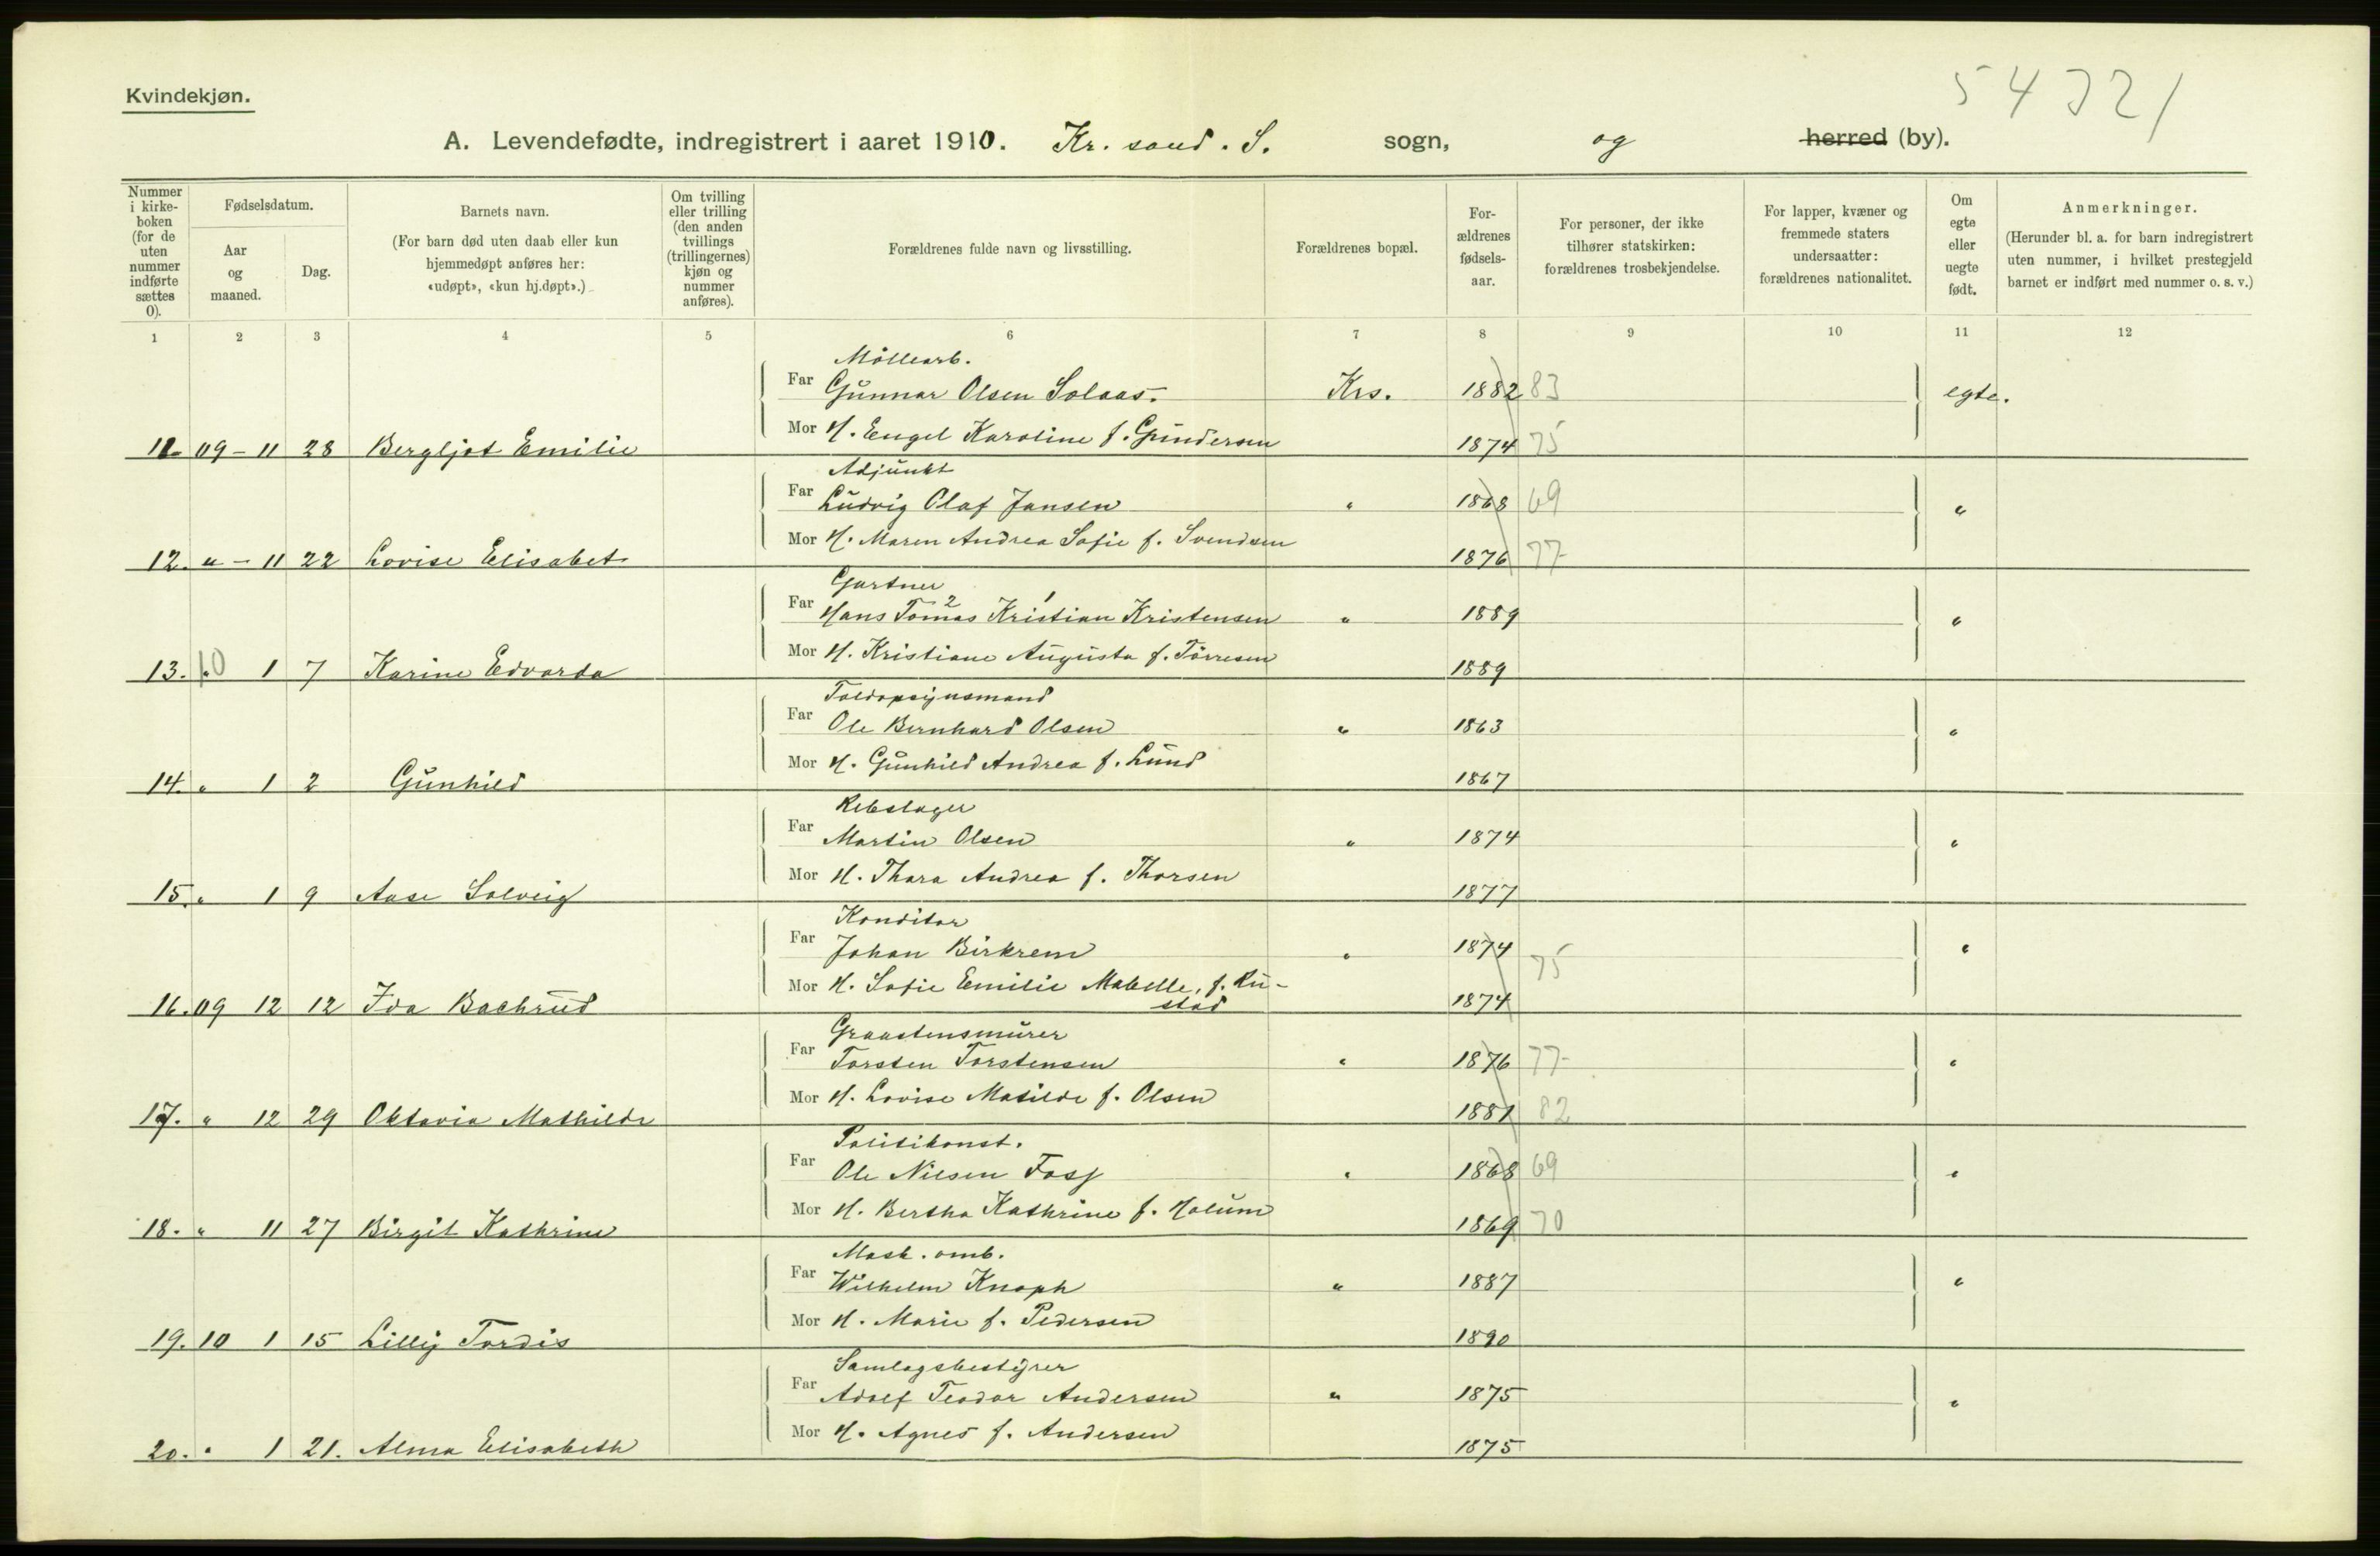 54321
Kvindekjøn.
A. Levendefødte, indregistrert i aaret 1910. Kr.sand. S. sogn, og herred (by).
Nummer i kirke-boken (for de uten nummer indførte sættes 0).
Fødselsdatum.
Aar og maaned.
Dag.
Barnets navn.
(For barn død uten daab eller kun hjemmedøpt anføres her: «udøpt», «kun hj.døpt».)
Om tvilling eller trilling (den anden tvillings (trillingernes) kjøn og nummer anføres).
Forældrenes fulde navn og livsstilling.
Forældrenes bopæl.
For-ældrenes fødsels-aar.
For personer, der ikke tilhører statskirken: forældrenes trosbekjendelse.
For lapper, kvæner og fremmede staters undersaatter: forældrenes nationalitet.
Om egte eller uegte født.
Anmerkninger.
(Herunder bl. a. for barn indregistrert uten nummer, i hvilket prestegjeld barnet er indført med nummer o. s. v.)
1 2 3 4 5 6 7 8 9 10 11 12
Möllearb.
Far Gunnar Olsen Solaas. Krs. 1882 83 egte.
Mor H. Engel Karoline f. Gundersen 1874 75
11. 09-11 28 Bergljot Emilie
Adjunkt
Far Ludvig Olaf Jansen " 1868 69 "
Mor H. Maren Andrea Sofie f. Svendsen 1876 77
12. " - 11 22 Lovise Elisabet
Gartner
Far Hans Tomas 2 Kristian 1 Kristensen " 1889 "
Mor H. Kristiane Augusta f. Törresen 1889
13. 10 1 7 Karine Edvarda
Toldopsynsmand
Far Ole Bernhard Olsen " 1863 "
Mor H. Gunhild Andrea f. Lund 1867
14. " 1 2 Gunhild
Rebslager
Far Martin Olsen " 1874 "
Mor H. Thora Andrea f. Thorsen 1877
15. " 1 9 Aase Solveig
Konditor
Far Johan Birkrem " 1874 75 "
Mor H. Sofie Emilie Mabelle, f. Ru-
stad 1874
16. 09 12 12 Ida Bachrud
Graastensmurer
Far Torsten Torstensen " 1876 77 "
Mor H. Lovise Matilde f. Olsen 1881 82
17. " 12 29 Oktavia Mathilde
Politikonst.
Far Ole Nilsen Foss " 1868 69 "
Mor H. Bertha Kathrine f. Holum 1869 70
18. " 11 27 Birgit Kathrine
Mask. omb.
Far Wilhelm Knoph " 1887 "
Mor H. Marie f. Pedersen 1890
19. 10 1 15 Lilly Tordis
Samlagsbestyrer
Far Adolf Teodor Andersen " 1875 "
Mor H. Agnes f. Andersen 1875
20. " 1 21. Alma Elisabeth